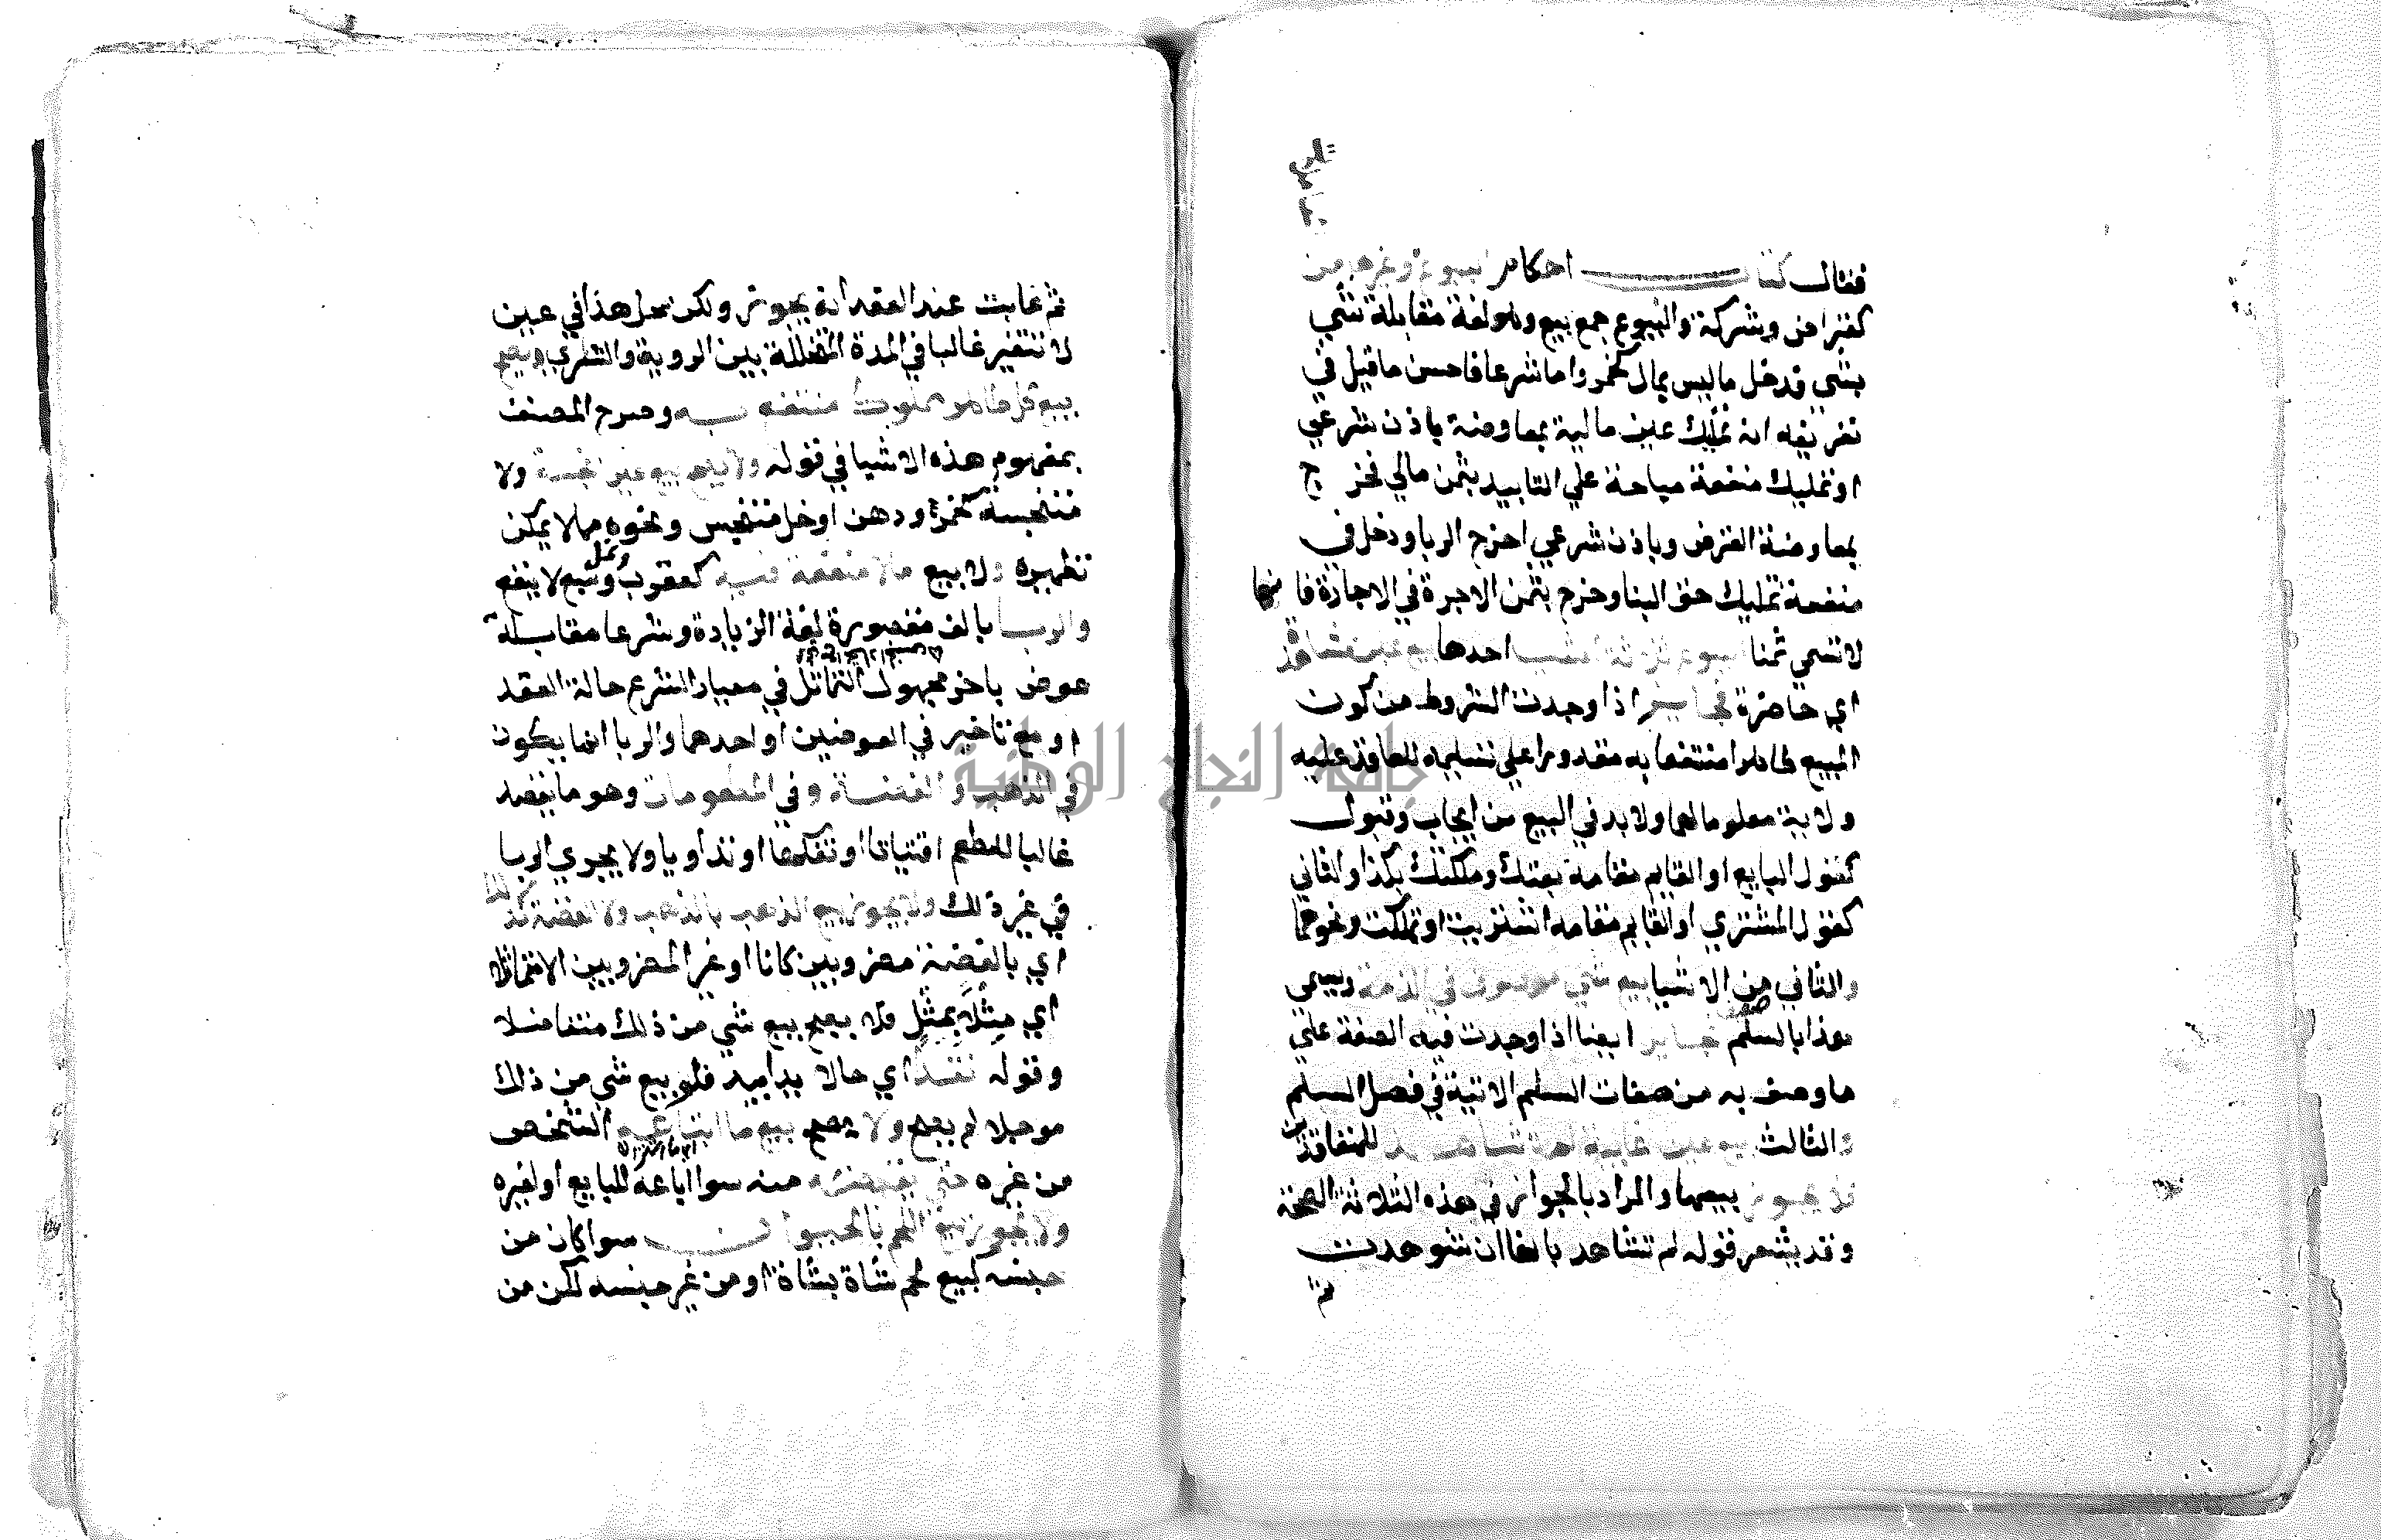 فقال كتاب احكام البيوع وغيرها من
كقراض وشركة والبيوع جمع بيع وهو لغة مقابلة شي
بشي فدخل ما ليس بمال كخمر واما شرعا فاحسن ما قيل في
تعريفه انه تمليك عين مالية بمعاوضة باذن شرعي
او تمليك منفعة مباحة علي التابيد بثمن مالي فخرج
بمعاوضة القرض وباذن شرعي اخرج الربا ودخل في
منفعة تمليك حق البنا وخرج بثمن الاجرة في الاجارة فانها
لا تسمي ثمنا البيوع ثلاثة اشيا احدها بيع عين مشاهدة
اي حاضرة فجايز اذا وجدت الشروط من كون
المبيع طاهرا منتفعا به مقدورا علي تسليمه للعاقد عليه
ولاية معلوما لهما ولا بد في البيع من ايجاب وقبول
كقول البايع او القايم مقامه بعتك وملكتك بكذا والثاني
كقول المشتري او القايم مقامه اشتريت او تملكت ونحوهما
والثاني من الاشيا بيع شي موصوف في الذمة ويسمي
هذا بالسلم جايز ايضا اذا وجدت فيه الصفة علي
ما وصف به من صفات السلم الاتية في فصل السلم
والثالث بيع عين غايبة لم تشاهد للمتعاقدين
فلا يجوز بيعها والمراد بالجواز في هذه الثلاثة الصحة
وقد يشعر قوله لم تشاهد بانها ان شوهدت
ثم
ثم غابت عند العقد انه يجوز ولكن محل هذا في عين
لا تتغير غالبا في المدة المتخللة بين الروية والشري ويصح
بيع كل طاهر مملوك منتفع به وصرح المصنف
بمفهوم هذه الاشيا في قوله ولا يصح بيع عين نجسة ولا
متنجسة كخمر ودهن وخل متنجس ونحوه مما لا يمكن
تطهيره ولا بيع ما لا منفعة فيه كعقرب ونمل وسبع لا ينفع
والربا بالف مقصورة لغة الزيادة وشرعا مقابلة
عوض باخر مجهول التماثل في معيار الشرع حالة العقد
او مع تاخير في العوضين او احدهما والربا انما يكون
في الذهب والفضة وفي المطعومات وهو ما يقصد
غالبا للطعم اقتياتا او تفكها او تداويا ولا يجري الربا
في غير ذلك ولا يجوز بيع الذهب بالذهب ولا الفضة كذلك
اي بالفضة مضروبين كانا او غير المضروبين الا متماثلا
اي مثلا بمثل فلا يصح بيع شي من ذلك متفاضلا
وقوله نقدا اي حالا يدا بيد فلو بيع شي من ذلك
موجلا لم يصح ولا يصح بيع ما ابتاعه الشخص
من غيره حتي يقبضه منه سوا اباعه للبايع او لغيره
ولا يجوز بيع اللحم بالحيوان سوا كان من
جنسه كبيع لحم شاة بشاة او من غير جنسه لكن من
جامعة النجاح الوطنية